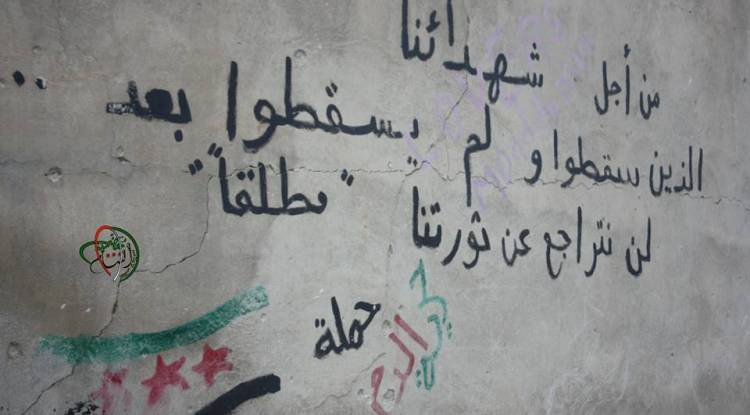 من أجل شهدائنا
الذين سقطوا و لم يسقطوا بعد ..
لن نتراجع عن ثورتنا "مطلقاً"
حملة